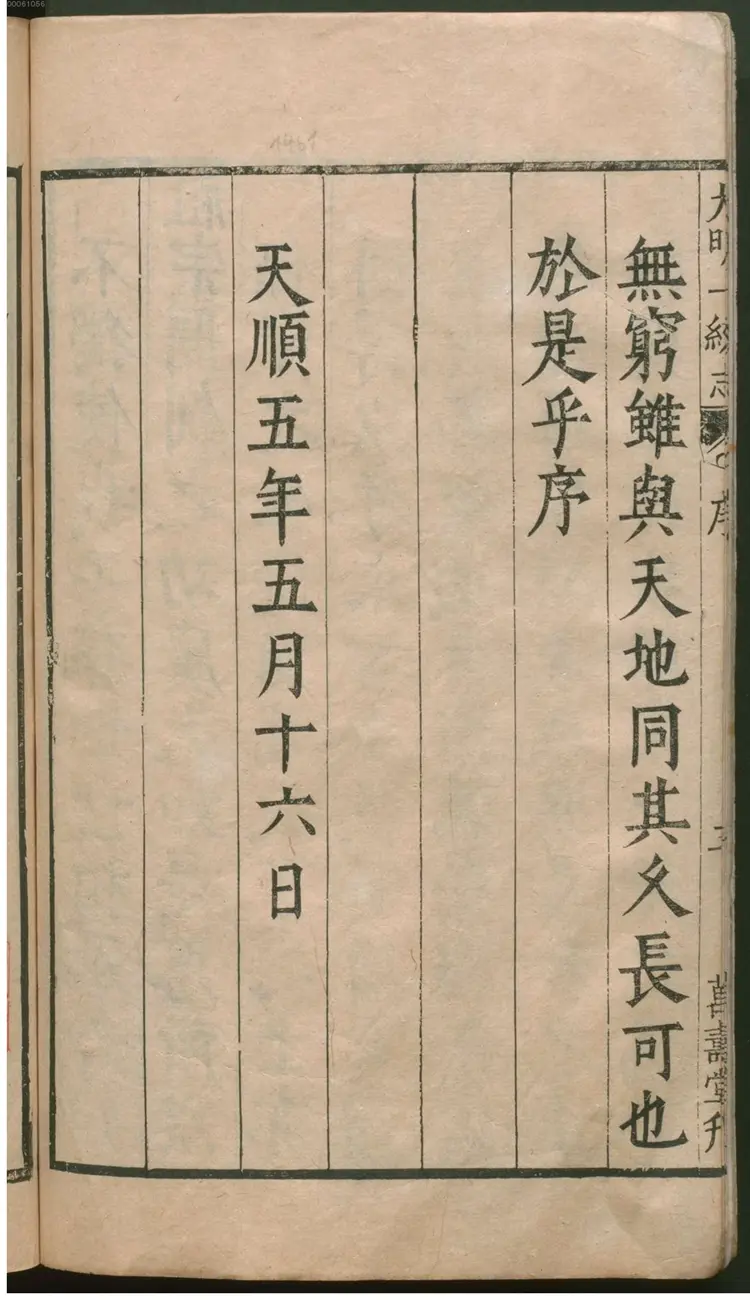 大明一統志
序
三
萬壽堂刊
無窮雖與天地同其久長可也
於是乎序
天順五年五月十六日
1461
00061056